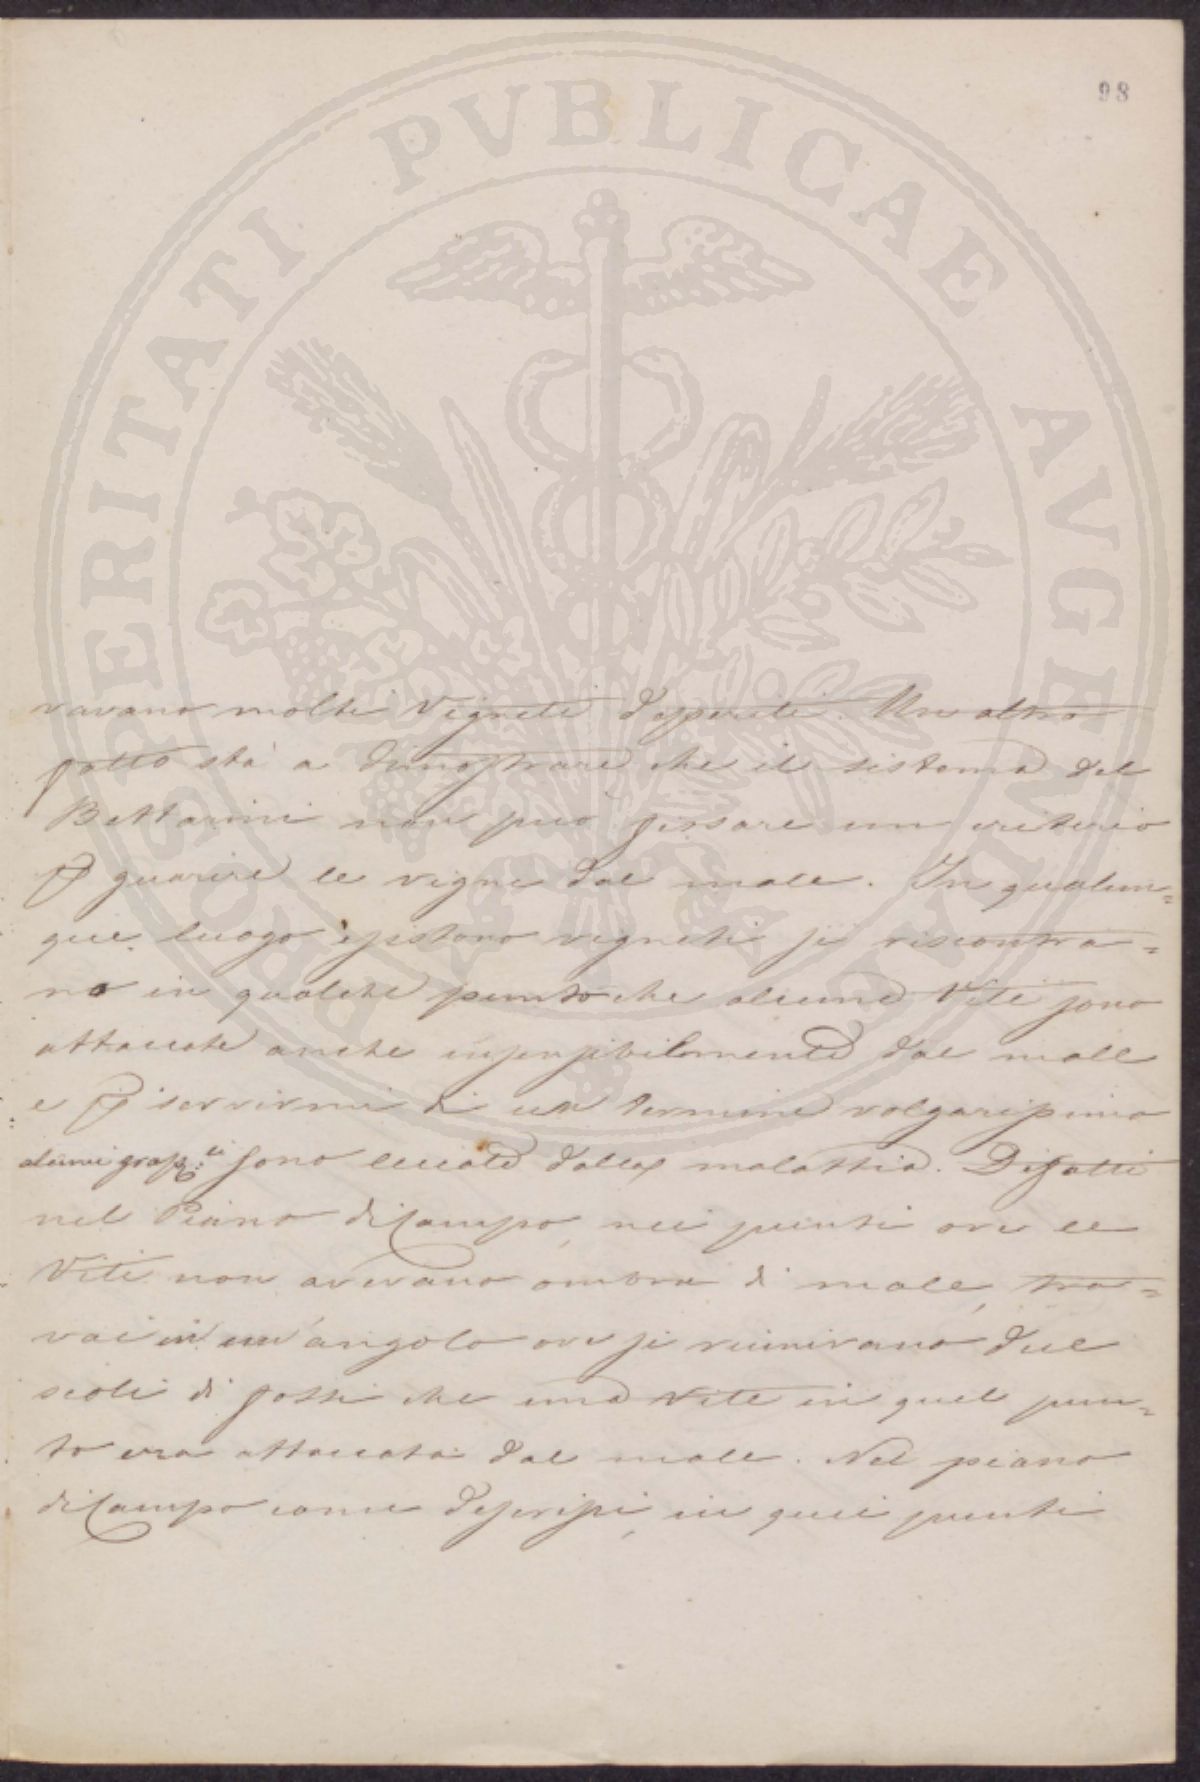 98
PROSPERITATI PVBLICAE AVGENDAE
vavano molti Vigneti deperiti. Un altro
fatto stà a dimostrare che il sistema del
Bettarini non può fissare un criterio
p guarire le vigne dal male. In qualun=
que luogo esistano vigneti si riscontra=
no in qualche punto che alcune Viti sono
attaccate anche insensibilmente dal male
e p servirmi di un termine volgarissimo
alcuni grap.li sono leccate dalla malattia. Difatti
nel Piano di Campo, nei punti ove le
Viti non avevano ombra di male, tro=
vai in un'angolo ove si riunivano due
scoli di fossi che una Vite in quel pun=
to era attaccata dal male. Nel piano
di Campo come descrissi, in quei punti